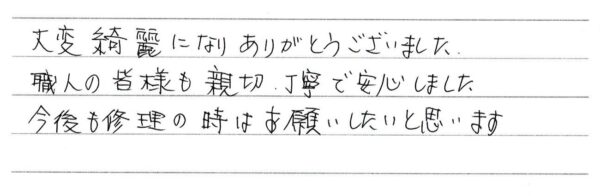 大変綺麗になりありがとうございました.
職人の皆様も親切.丁寧で安心しました
今後も修理の時はお願いしたいと思います